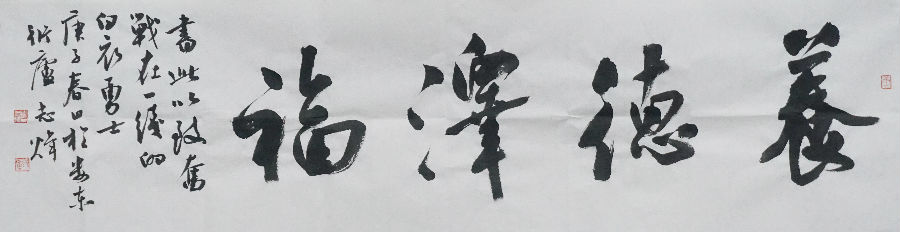 養德澤福
書此以致奮
戰在一綫的
白衣勇士
庚子春日於婁東
衍廬志煒